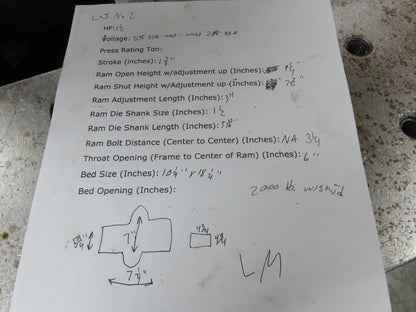 L&J No 2
HP: 1½
Voltage: 208 220
Press Rating Ton:
Stroke (inches): 1 ¾"
Ram Open Height w/adjustment up (Inches):
Ram Shut Height w/adjustment up (Inches):
Ram Adjustment Length (Inches): 3"
Ram Die Shank Size (Inches): 1 ½
Ram Die Shank Length (Inches):
Ram Bolt Distance (Center to Center) (Inches): NA 3¼
Throat Opening (Frame to Center of Ram) (Inches): 6"
Bed Size (Inches): 10 ¼" x 18 ¼"
Bed Opening (Inches):
2000 lb w/skid
7"
7 ¼"
LM